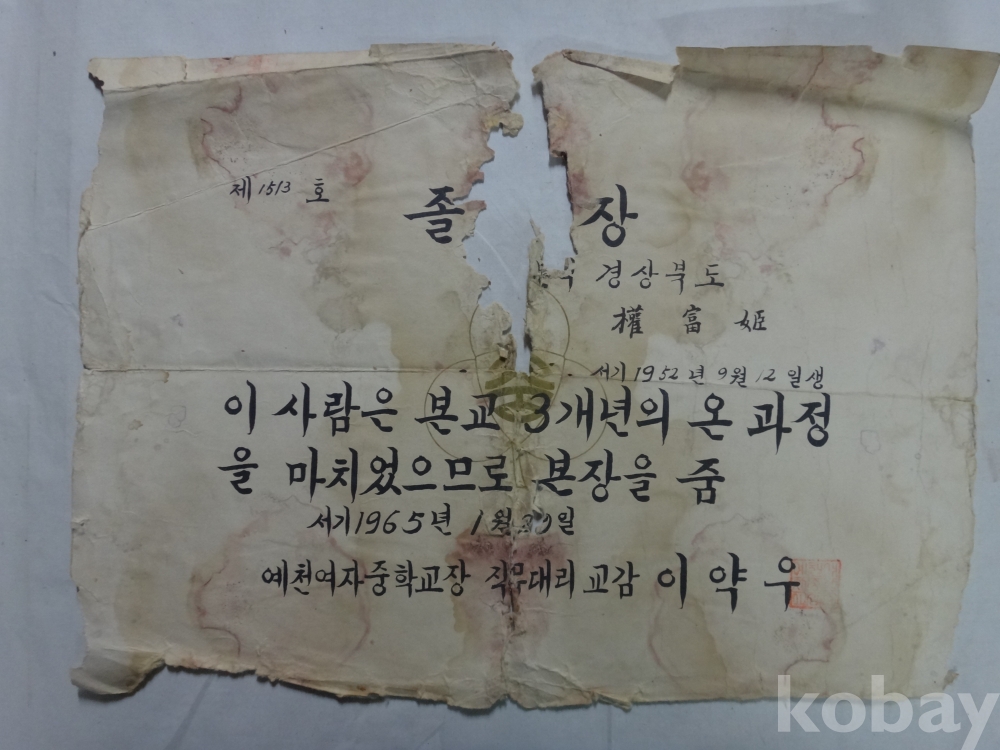 제 1513 호
졸 장
경상북도
權 富 姬
서기 1952 년 9 월 12 일생
이 사람은 본교 3개년의 온 과정
을 마치었으므로 본장을 줌
서기 1965 년 1 월 일
예천여자중학교장 직무대리 교감 이 약 우
kobay